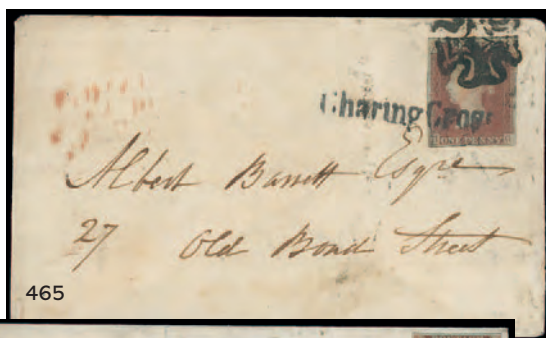 Charing Cross
ONE PENNY
Albert Barrett Esqre
27 Old Bond Street
465